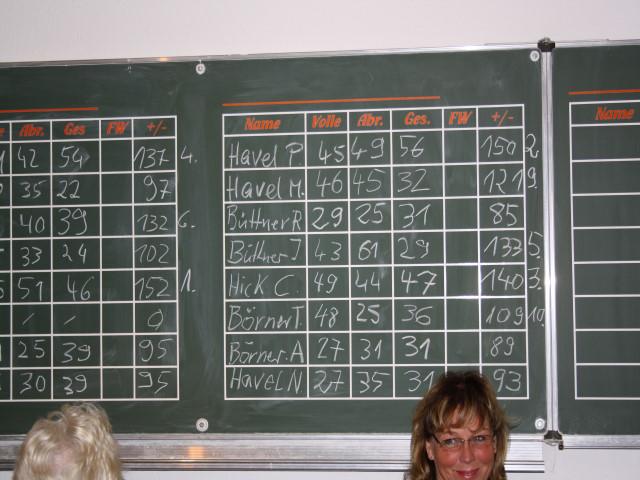 Abr. Ges FW +/-
42 54 137 4.
35 22 97
40 39 132 6.
33 24 102
51 46 152 1.
/ / 0
25 39 95
30 39 95
Name Volle Abr. Ges. FW +/-
Havel P. 45 49 56 150 2.
Havel M. 46 45 32 121 9.
Büttner R 29 25 31 85
Büttner J 43 61 29 133 5.
Hick C. 49 44 47 140 3.
Börner T. 48 25 36 109 10.
Börner A 27 31 31 89
Havel N. 27 35 31 93
Name